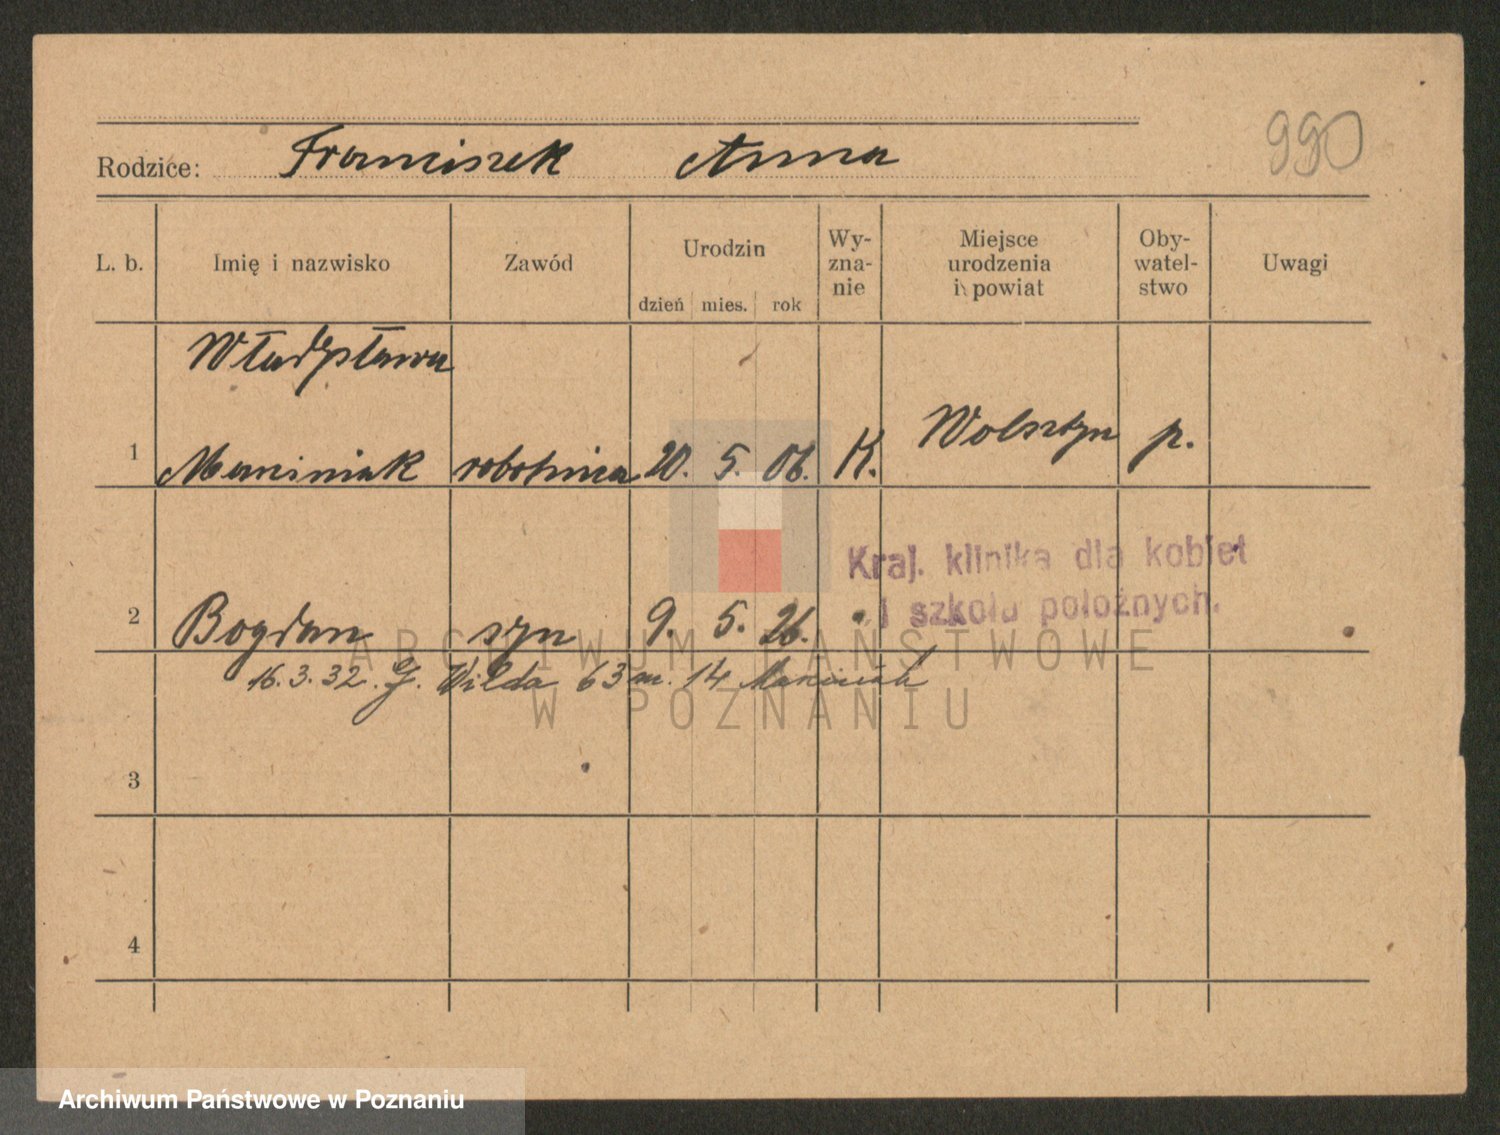 990
Rodzice: Franciszek Anna
L. b. Imię i nazwisko Zawód Urodzin dzień mies. rok Wy-zna-nie Miejsce urodzenia i powiat Oby-watel-stwo Uwagi
Władysława
1 Marciniak robotnica 20. 5. 06. K. Wolsztyn p.
Kraj. klinika dla kobiet
i szkoła położnych.
2 Bogdan syn 9. 5. 26. "
16.3.32. G. Wilda 63 m. 14 Marciniak
3
4
ARCHIWUM PAŃSTWOWE
W POZNANIU
Archiwum Państwowe w Poznaniu